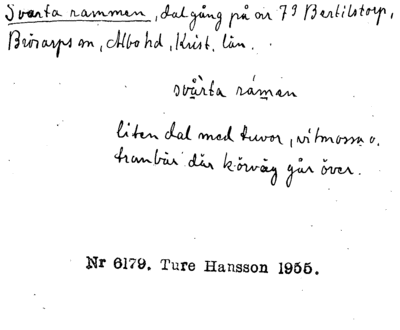 Svarta rammen, dalgång på nr 7⁹ Bertilstorp,
Brösarps sn, Albo hd, Krist. län.
svárta ráman
liten dal med tuvor, vitmossa o.
tranbär där körväg går över.
Nr 6179. Ture Hansson 1955.